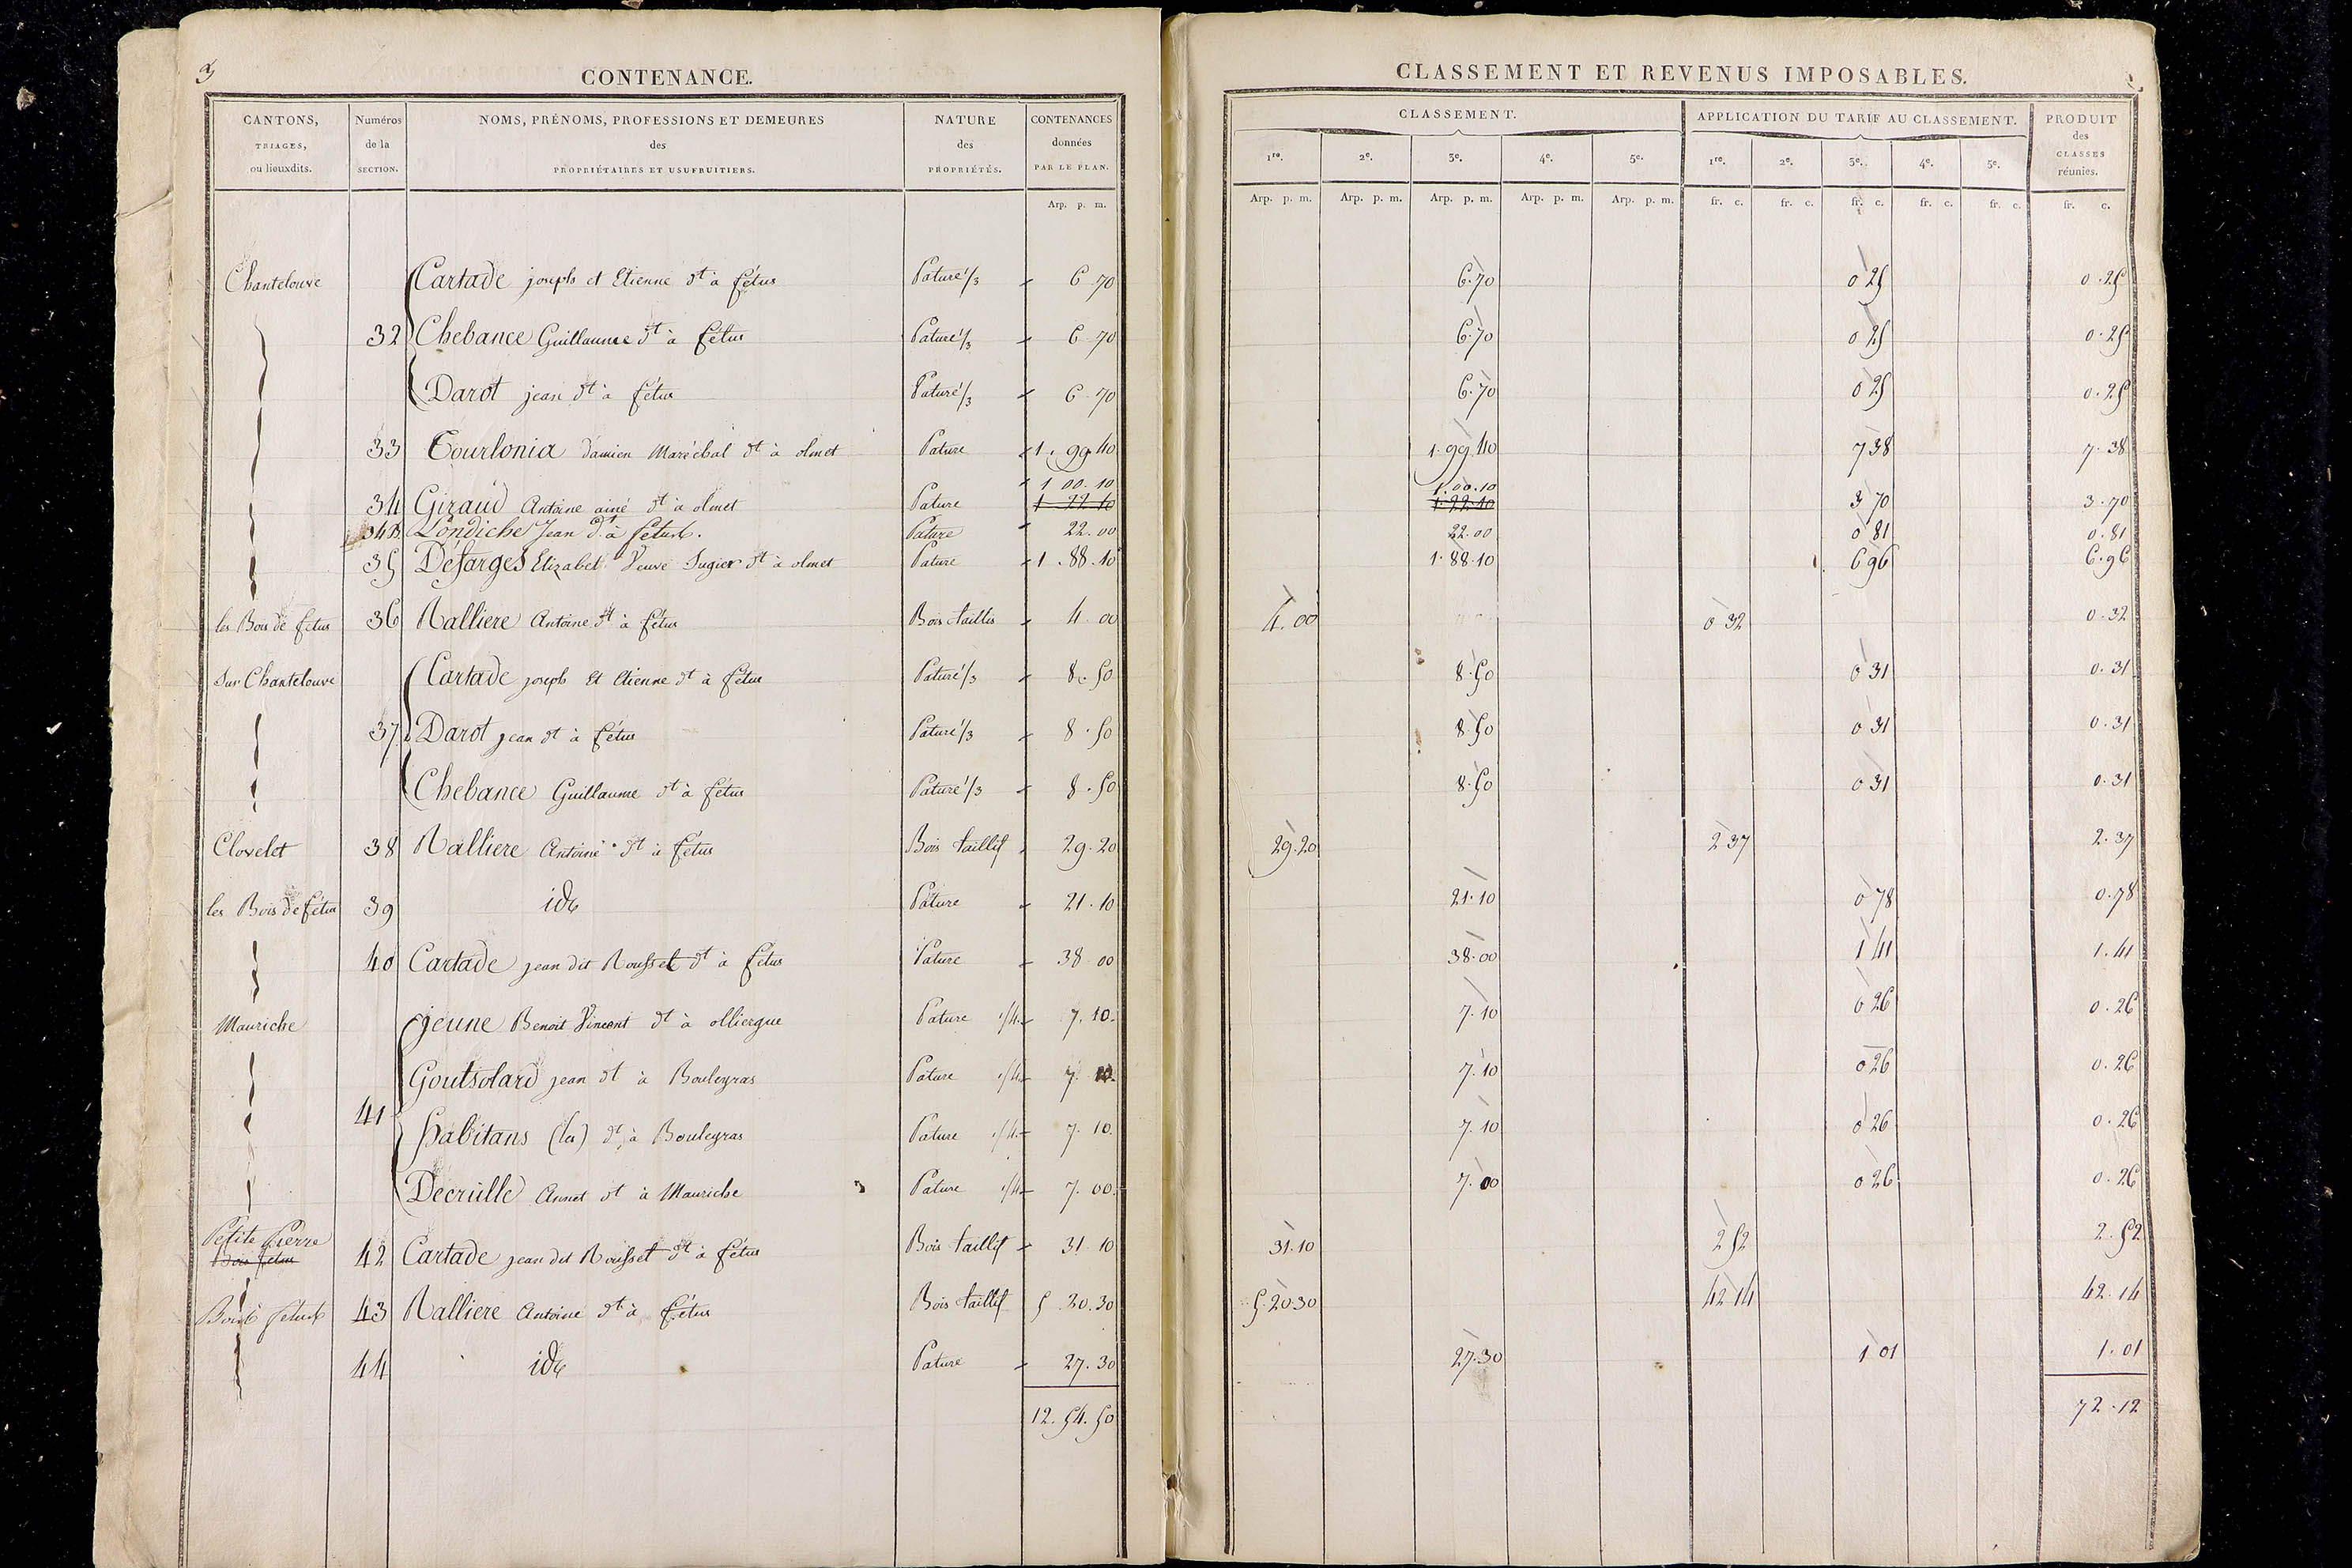 3
CONTENANCE.
CANTONS, TRIAGES, ou lieuxdits. Numéros de la SECTION. NOMS, PRÉNOMS, PROFESSIONS ET DEMEURES des PROPRIÉTAIRES ET USUFRUITIERS. NATURE des PROPRIÉTÉS. CONTENANCES données PAR LE PLAN.
Arp. p. m.
Chantelouve Cartade joseph et Etienne dt à fétus Pature 1/3 6 70
32 Chebance Guillaume dt à fétus Pature 1/3 6 70
Darot jean dt à fétus Pature 1/3 6 70
33 Tourlonia damien Maréchal dt à olmet Pature 1. 99 40
1 00. 10
34 Giraud Antoine ainé dt à olmet Pature 1 22 10
34B Londiche Jean dt à fétus. Pature 22. 00
35 Défarges Elizabet Veuve Sugier dt à olmet Pature 1. 88. 10
les Bois de fétus 36 Nalliere Antoine dt à fétus Bois taillis 4 00
Sur Chantelouve Cartade joseph Et Etienne dt à fétus Pature 1/3 8. 50
37 Darot jean dt à fétus Pature 1/3 8. 50
Chebance Guillaume dt à fétus Pature 1/3 8. 50
Clovelet 38 Nalliere Antoine dt à fétus Bois taillis 29. 20
les Bois de fétus 39 ide Pature 21. 10
40 Cartade jean dit Rousset dt à fétus Pature 38 00
Mauriche jeune Benoit Vincent dt à olliergue Pature 1/4 7. 10.
Goutsolard jean dt à Bouleyras Pature 1/4 7. 10.
41 habitans (les) dt à Bouleyras Pature 1/4 7. 10.
Decrülle Annet dt à Mauriche Pature 1/4 7. 00.
Petite Pierre
Bois fétus 42 Cartade jean dit Rousset dt à fétus Bois taillis 31 10
Bois fétus 43 Nalliere Antoine dt à fétus Bois taillis 5 20. 30
44 ide Pature 27. 30
12. 54. 50
CLASSEMENT ET REVENUS IMPOSABLES.
CLASSEMENT. APPLICATION DU TARIF AU CLASSEMENT. PRODUIT des CLASSES réunies.
1re. 2e. 3e. 4e. 5e. 1re. 2e. 3e. 4e. 5e.
Arp. p. m. Arp. p. m. Arp. p. m. Arp. p. m. Arp. p. m. fr. c. fr. c. fr. c. fr. c. fr. c. fr. c.
6.70 0 25 0.25
6.70 0 25 0.25
6.70 0 25 0.25
1.99.40 7 38 7.38
1.00.10
1.22.10 3 70 3.70
22.00 0 81 0.81
1.88.10 6 96 6.96
4.00 0 32 0.32
8.50 0 31 0.31
8.50 0 31 0.31
8.50 0 31 0.31
29.20 2 37 2.37
21.10 0 78 0.78
38.00 1 41 1.41
7.10 0 26 0.26
7.10 0 26 0.26
7.10 0 26 0.26
7.00 0 26 0.26
31.10 2 52 2.52
5.20.30 42 14 42.14
27.30 1 01 1.01
72.12